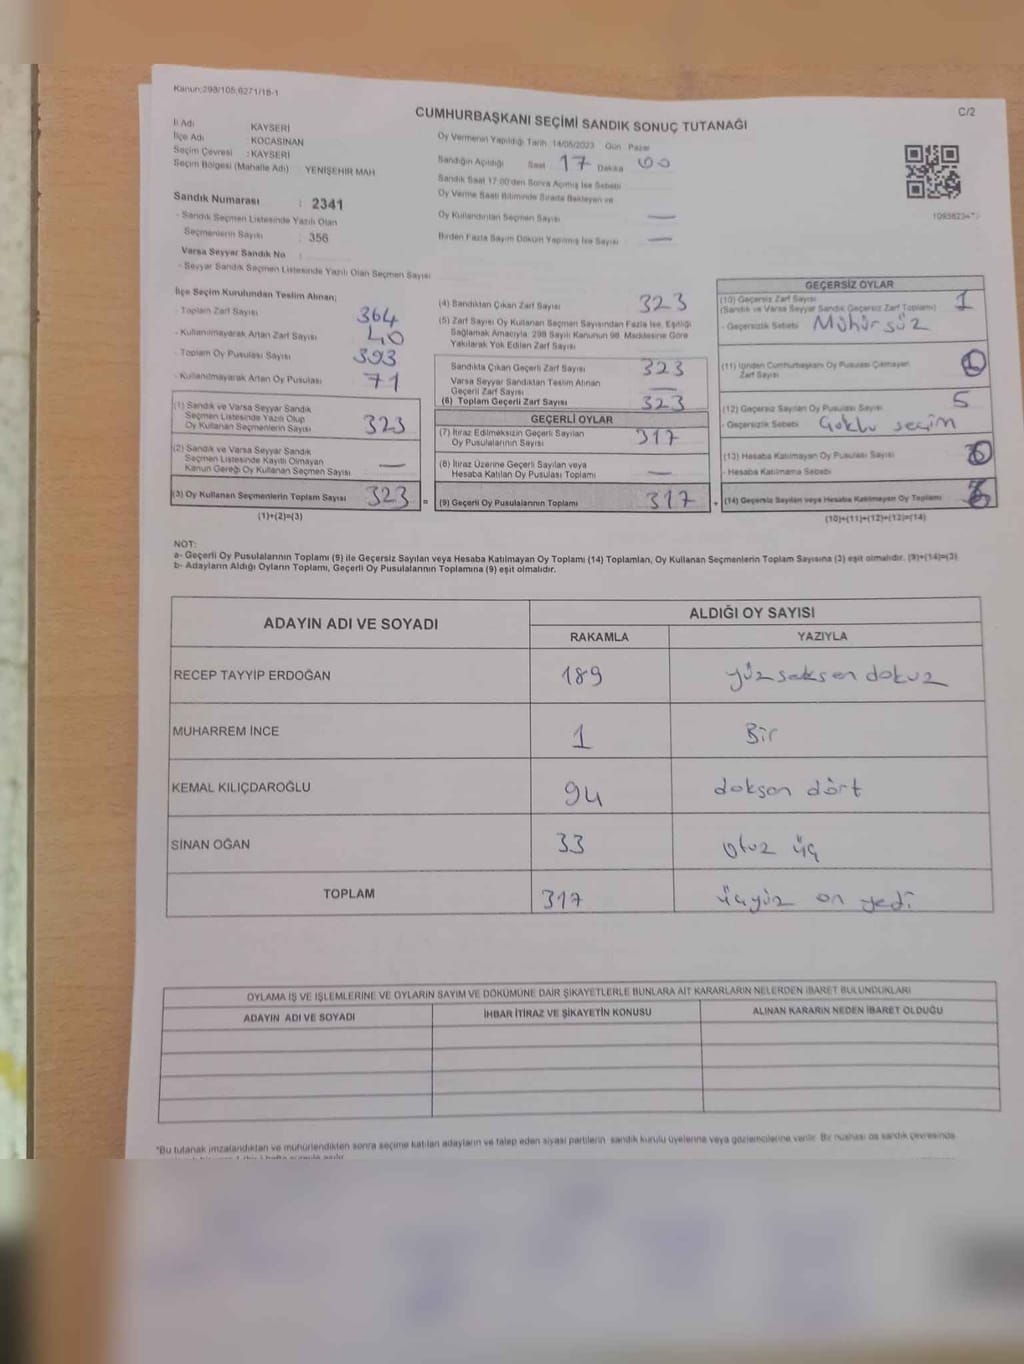 Kanun:298/105,6271/18-1
C/2
CUMHURBAŞKANI SEÇİMİ SANDIK SONUÇ TUTANAĞI
İl Adı KAYSERİ
İlçe Adı KOCASİNAN
Seçim Çevresi : KAYSERİ
Seçim Bölgesi (Mahalle Adı) : YENİŞEHİR MAH
Sandık Numarası : 2341
- Sandık Seçmen Listesinde Yazılı Olan
Seçmenlerin Sayısı : 356
Varsa Seyyar Sandık No :
- Seyyar Sandık Seçmen Listesinde Yazılı Olan Seçmen Sayısı
Oy Vermenin Yapıldığı Tarih: 14/05/2023 Gün Pazar
Sandığın Açıldığı Saat 17 Dakika 00
Sandık Saat 17:00'den Sonra Açılmış İse Sebebi
Oy Verme Saati Bitiminde Sırada Bekleyen ve
Oy Kullandırılan Seçmen Sayısı —
Birden Fazla Sayım Döküm Yapılmış İse Sayısı —
İlçe Seçim Kurulundan Teslim Alınan;
- Toplam Zarf Sayısı 364
- Kullanılmayarak Artan Zarf Sayısı 40
- Toplam Oy Pusulası Sayısı 393
- Kullanılmayarak Artan Oy Pusulası 71
(1) Sandık ve Varsa Seyyar Sandık
Seçmen Listesinde Yazılı Olup
Oy Kullanan Seçmenlerin Sayısı 323
(2) Sandık ve Varsa Seyyar Sandık
Seçmen Listesinde Kayıtlı Olmayan
Kanun Gereği Oy Kullanan Seçmen Sayısı —
(3) Oy Kullanan Seçmenlerin Toplam Sayısı 323 =
(1)+(2)=(3)
(4) Sandıktan Çıkan Zarf Sayısı 323
(5) Zarf Sayısı Oy Kullanan Seçmen Sayısından Fazla İse, Eşitliği
Sağlamak Amacıyla, 298 Sayılı Kanunun 98. Maddesine Göre
Yakılarak Yok Edilen Zarf Sayısı
Sandıkta Çıkan Geçerli Zarf Sayısı 323
Varsa Seyyar Sandıktan Teslim Alınan
Geçerli Zarf Sayısı —
(6) Toplam Geçerli Zarf Sayısı 323
GEÇERLİ OYLAR
(7) İtiraz Edilmeksizin Geçerli Sayılan
Oy Pusulalarının Sayısı 317
(8) İtiraz Üzerine Geçerli Sayılan veya
Hesaba Katılan Oy Pusulası Toplamı —
(9) Geçerli Oy Pusulalarının Toplamı 317 +
GEÇERSİZ OYLAR
(10) Geçersiz Zarf Sayısı 1
(Sandık ve Varsa Seyyar Sandık Geçersiz Zarf Toplamı)
- Geçersizlik Sebebi Mühürsüz
(11) İçinden Cumhurbaşkanı Oy Pusulası Çıkmayan
Zarf Sayısı
(12) Geçersiz Sayılan Oy Pusulası Sayısı 5
- Geçersizlik Sebebi Çoklu seçim
(13) Hesaba Katılmayan Oy Pusulası Sayısı
- Hesaba Katılmama Sebebi
(14) Geçersiz Sayılan veya Hesaba Katılmayan Oy Toplamı
(10)+(11)+(12)+(13)=(14)
NOT:
a- Geçerli Oy Pusulalarının Toplamı (9) ile Geçersiz Sayılan veya Hesaba Katılmayan Oy Toplamı (14) Toplamları, Oy Kullanan Seçmenlerin Toplam Sayısına (3) eşit olmalıdır. (9)+(14)=(3)
b- Adayların Aldığı Oyların Toplamı, Geçerli Oy Pusulalarının Toplamına (9) eşit olmalıdır.
ADAYIN ADI VE SOYADI ALDIĞI OY SAYISI
RAKAMLA YAZIYLA
RECEP TAYYİP ERDOĞAN 189 yüzseksen dokuz
MUHARREM İNCE 1 Bir
KEMAL KILIÇDAROĞLU 94 doksan dört
SİNAN OĞAN 33 otuz üç
TOPLAM 317 üçyüz on yedi
OYLAMA İŞ VE İŞLEMLERİNE VE OYLARIN SAYIM VE DÖKÜMÜNE DAİR ŞİKAYETLERLE BUNLARA AİT KARARLARIN NELERDEN İBARET BULUNDUKLARI
ADAYIN ADI VE SOYADI İHBAR İTİRAZ VE ŞİKAYETİN KONUSU ALINAN KARARIN NEDEN İBARET OLDUĞU
*Bu tutanak imzalandıktan ve mühürlendikten sonra seçime katılan adayların ve talep eden siyasi partilerin sandık kurulu üyelerine veya gözlemcilerine verilir. Bir nüshası da sandık çevresinde